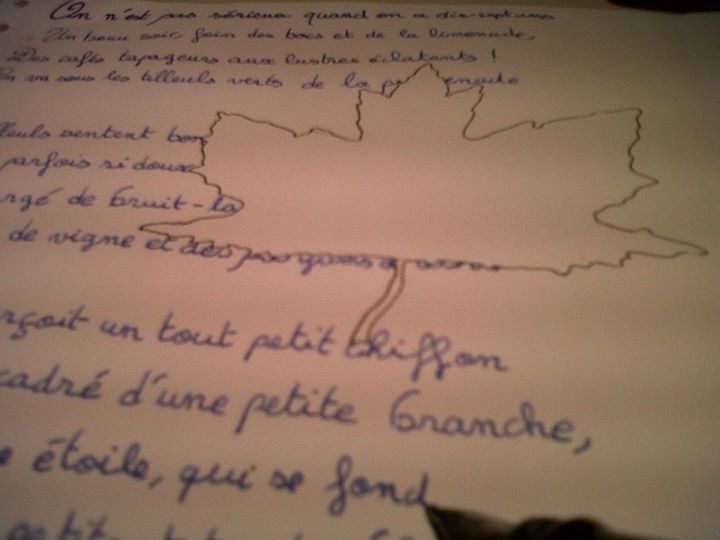 On n'est pas sérieux quand on a dix-sept ans
Un beau soir foin des bocs et de la limonade,
Des cafés tapageurs aux lustres éclatants !
va sous les tilleuls verts de la enade
lleuls sentent bon
parfois si doux
rgé de bruit - la
de vigne et des
rçoit un tout petit chiffon
cadré d'une petite branche,
e étoile, qui se fond